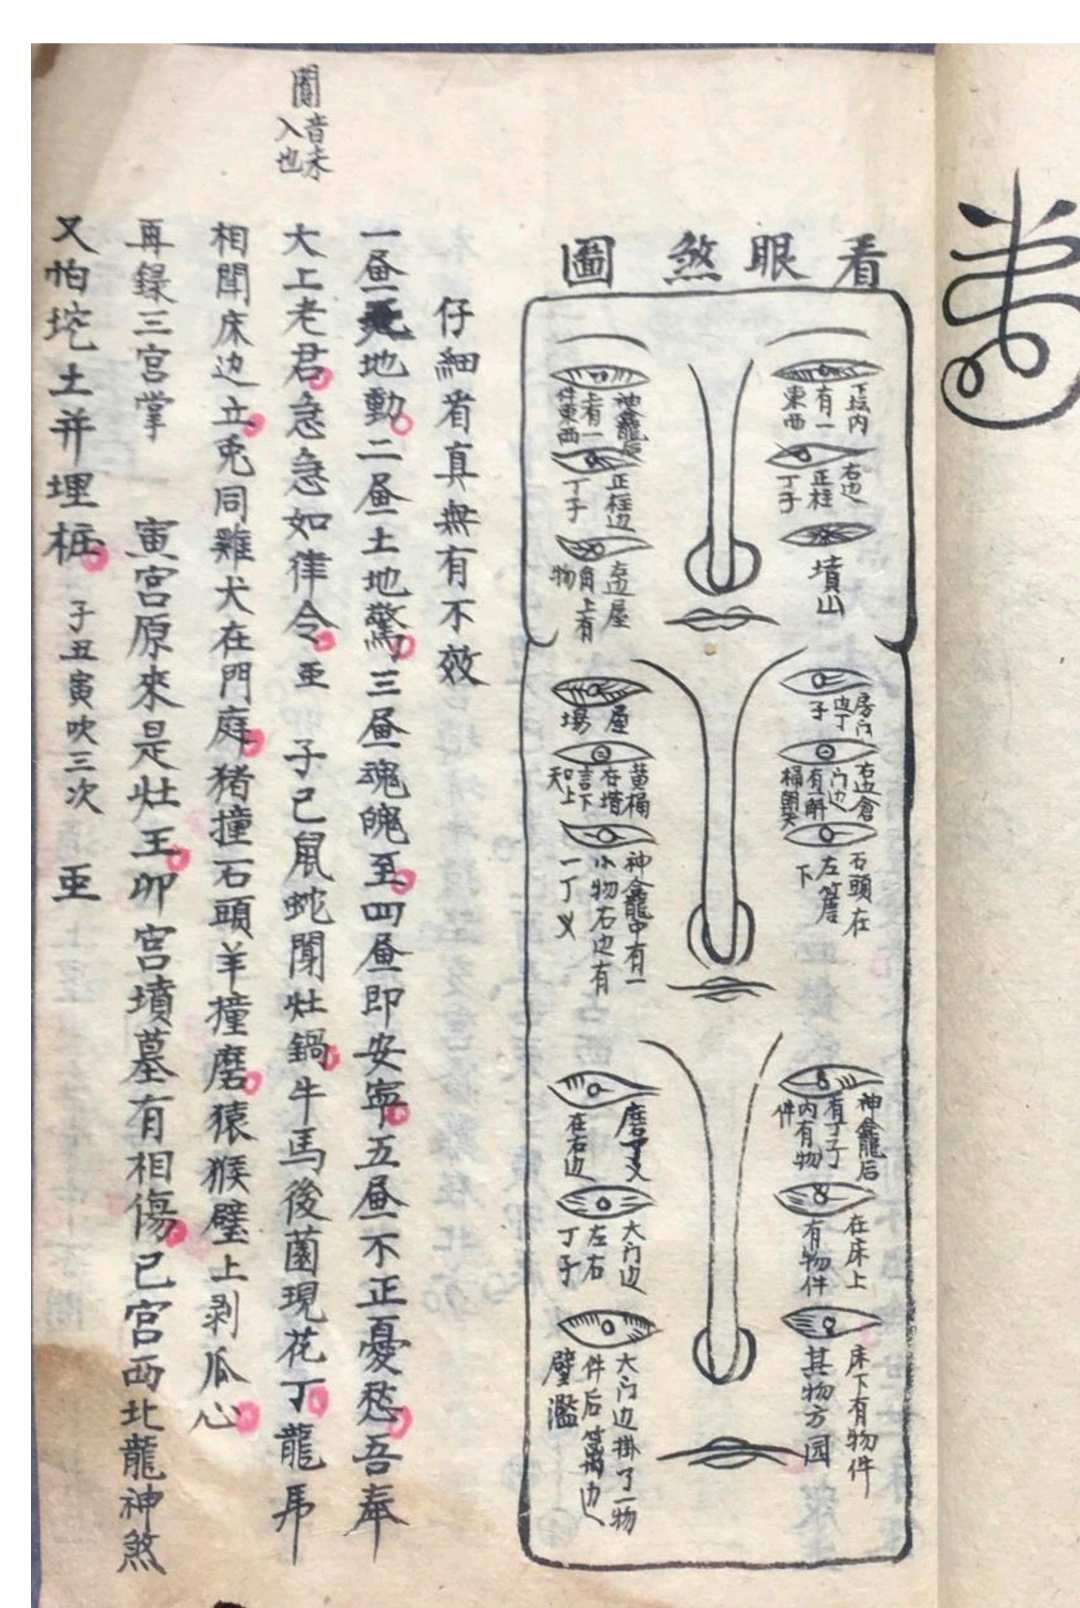 看眼煞圖
丁坛内
有一
東西
右边
正柱
丁子
墳山
神龕后
上有一
件東西
正柱边
丁子
左边屋
角上有
物
房门
边丁
子
右边倉
门边
有一斛
桶朝天
石頭在
左簷
下
屋
場
黄桶
在堦
言下
和上
天
神龕中有一
小物右边有
一丁义
神龕后
有丁子
内有物
件
在床上
有物件
床下有物件
其物方园
磨丁义
在右边
大门边
左右
丁子
大门边掛了一物
件后簷角边
壁濫
仔細省真無有不效
一昼天地動二昼土地驚三昼魂魄至四昼即安寧五昼不正憂愁吾奉
大上老君急急如律令 亜 子已鼠蛇聞灶鍋牛馬後薗現花丁龍馬
相聞床边立兎同雞犬在門庭猪撞石頭羊撞磨猿猴壁上剥瓜心
再録三宮掌 寅宮原來是灶王卯宮墳墓有相傷已宮西北龍神煞
又怕挖土并埋桩 子丑寅吹三次 亜
音未
入也